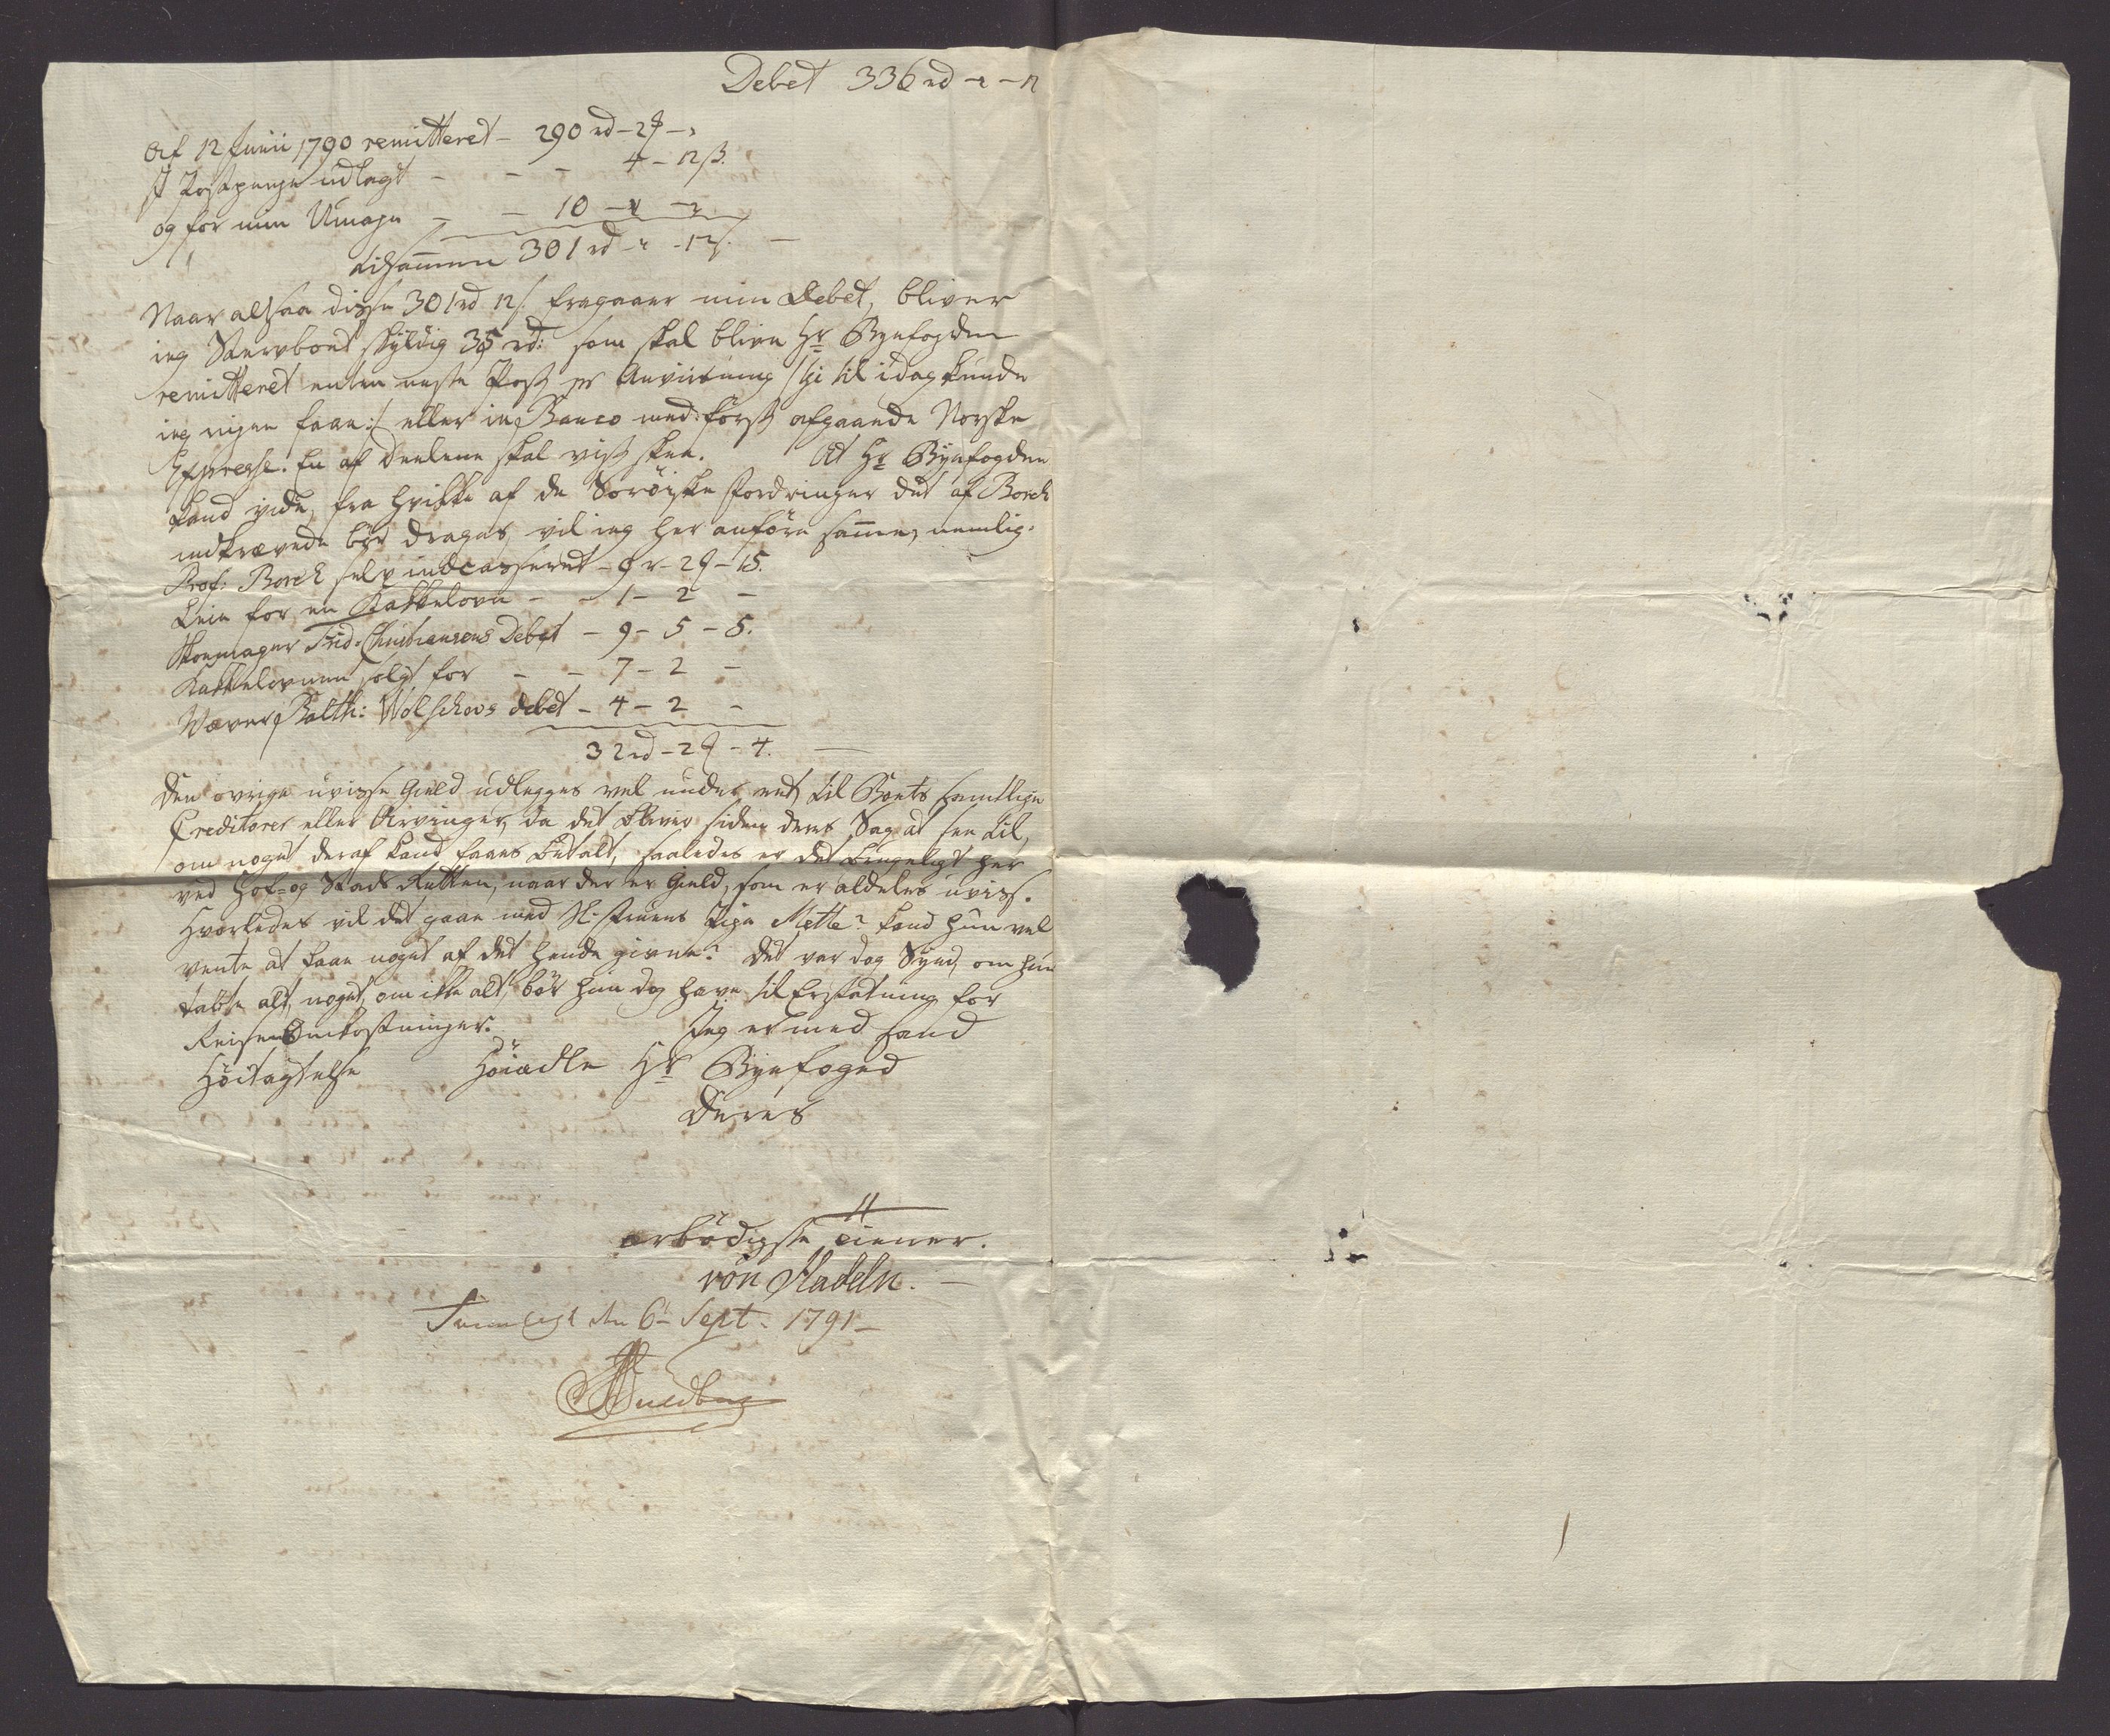 Debet 336 rd - " - 12
Af 12 Junii 1790 remitteret - 290 rd - 2 ₰ - "
I Postpenge udlagt - - - 4 - 12 ß.
og for min Umage - - 10 - " - "
tilsam̄en 301 rd - " - 12 ß. -
Naar altsaa disse 301 rd 12 ß. fragaaer min Debet, bliver
ieg Sterbboet skyldig 35 rd: som skal blive Hr Byefogden
remitteret enten neste Post pr Anviisning /: thi til idag kunde
ieg ingen faae :/ eller in Banco med först afgaaende Norske
Expresse. En af Deelene skal vist skee. At Hr Byefogden
kand vide, fra hvilke af de Soröiske Fordringer det af Borch
indkrævede bör drages, vil ieg her anföre sam̄e, nemlig:
Prof: Borch selv indcasseret - 9 r - 2 ₰ - 15.
Leie for en Kakkelovn - - 1 - 2 -
Skoemager Frid: Christiansens Debet - 9 - 5 - 5.
Kakkelovnen solgt for - - 7 - 2 -
Wæver Balth: Wolschovs debet - 4 - 2 -
32 rd - 2 ₰ - 4. -
Den övrige uvisse Gield udlegges vel under eet til Boets samtlige
Creditorer eller Arvinger, da det bliver siden deres Sag at see til,
om noget deraf kand faaes betalt, saaledes er det brugeligt her
ved Hof- og Stads Retten, naar der er Gield, som er aldeles uviss.
Hvorledes vil det gaae med Sl. Fruens Pige Mette? kand hun vel
vente at faae noget af det hende givne? Det var dog Synd, om hun
tabte alt, noget, om ikke alt, bör hun dog have til Erstatning for
Reisens Omkostninger. Jeg er med sand
Höiagtelse Höiædle Hr Byefoged
Deres
ærbödigste tiener.
von Hadeln. -
den 6te Sept. 1791 -